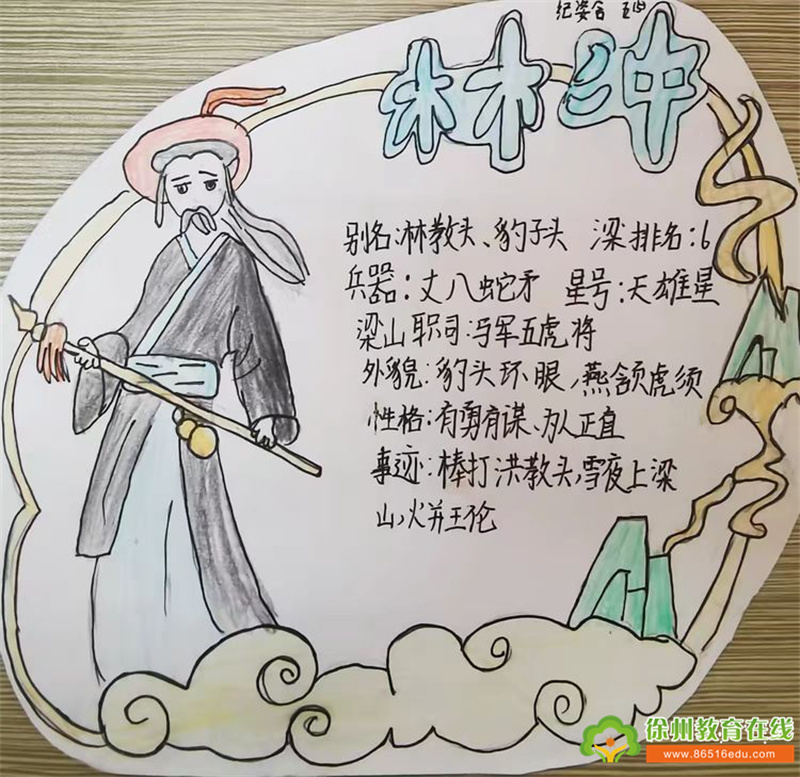 纪姿含 五15
林绅
别名:林教头、豹子头 梁排名:6
兵器:丈八蛇矛 星号:天雄星
梁山职司:马军五虎将
外貌:豹头环眼,燕颔虎须
性格:有勇有谋、为人正直
事迹:棒打洪教头,雪夜上梁
山,火并王伦
徐州教育在线
www.86516edu.com